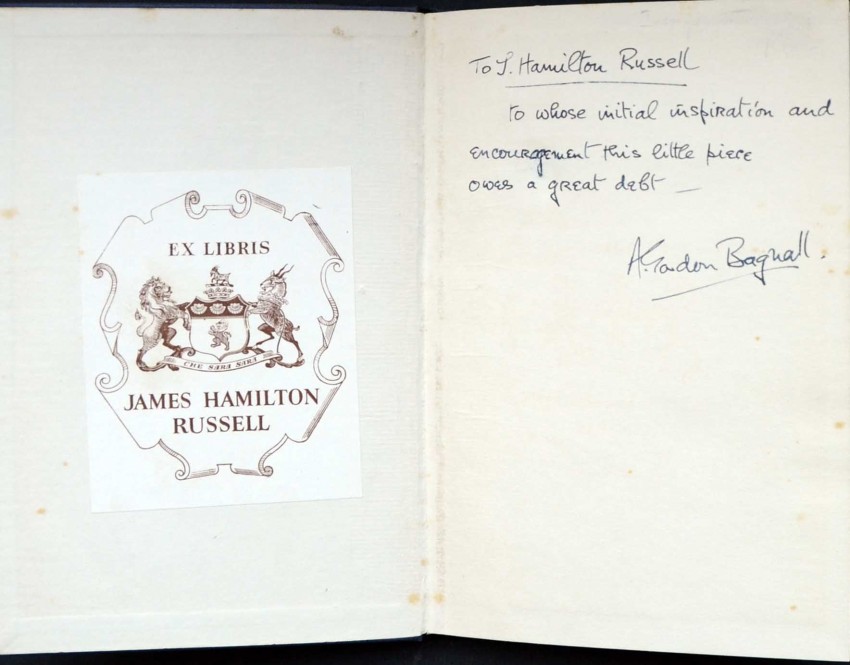 EX LIBRIS
CHE SARA SARA
JAMES HAMILTON
RUSSELL
To J. Hamilton Russell
to whose initial inspiration and
encouragement this little piece
owes a great debt —
A. Gordon Bagnall.